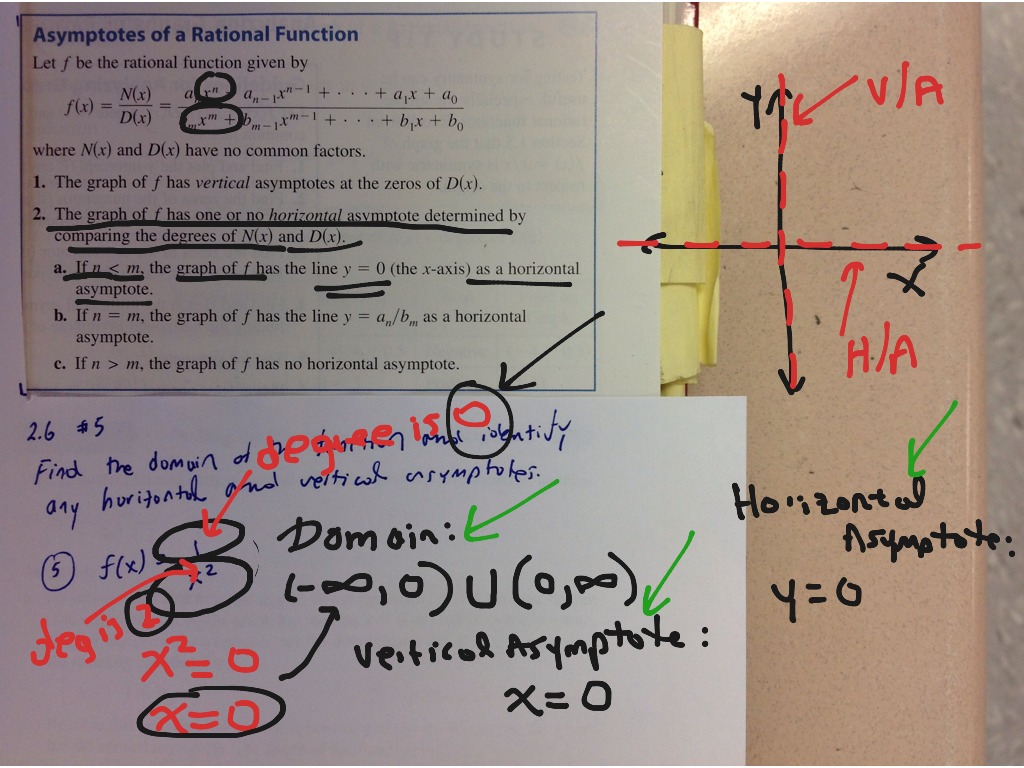 Asymptotes of a Rational Function
Let f be the rational function given by
f(x) = N(x)/D(x) = a xⁿ + aₙ₋₁xⁿ⁻¹ + · · · + a₁x + a₀ / ₘxᵐ + bₘ₋₁xᵐ⁻¹ + · · · + b₁x + b₀
where N(x) and D(x) have no common factors.
1. The graph of f has vertical asymptotes at the zeros of D(x).
2. The graph of f has one or no horizontal asymptote determined by
comparing the degrees of N(x) and D(x).
a. If n < m, the graph of f has the line y = 0 (the x-axis) as a horizontal
asymptote.
b. If n = m, the graph of f has the line y = aₙ/bₘ as a horizontal
asymptote.
c. If n > m, the graph of f has no horizontal asymptote.
Y
V/A
X
H/A
2.6 #5
degree is 0
Find the domain of function and identify
any horizontal and vertical asymptotes.
5 f(x) = 1/x²
deg is 2
x² = 0
x = 0
Domain:
(-∞, 0) ∪ (0, ∞)
Vertical Asymptote:
x = 0
Horizontal
Asymptote:
y = 0